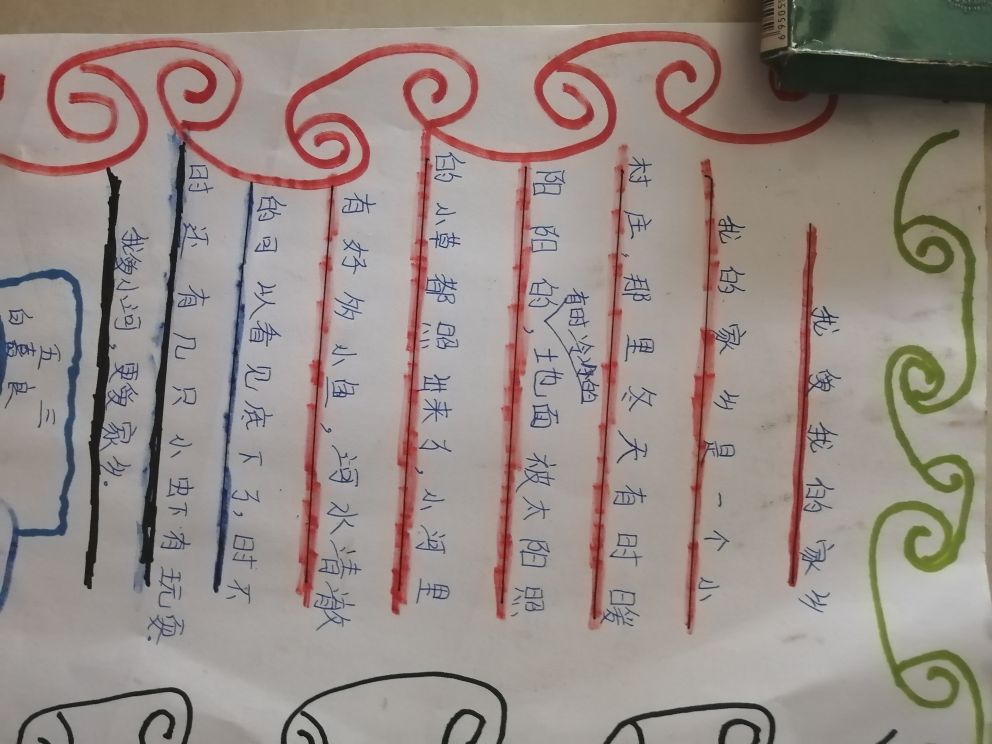 我爱我的家乡
我的家乡是一个小
村庄,那里冬天有时暖
有时冷
阳阳的,地面被太阳照
的小草都照进来了,小河里
有好多小鱼,河水清澈
的可以看见底下了,时不
时还有几只小虾有玩耍.
我爱小河,更爱家乡.
五三